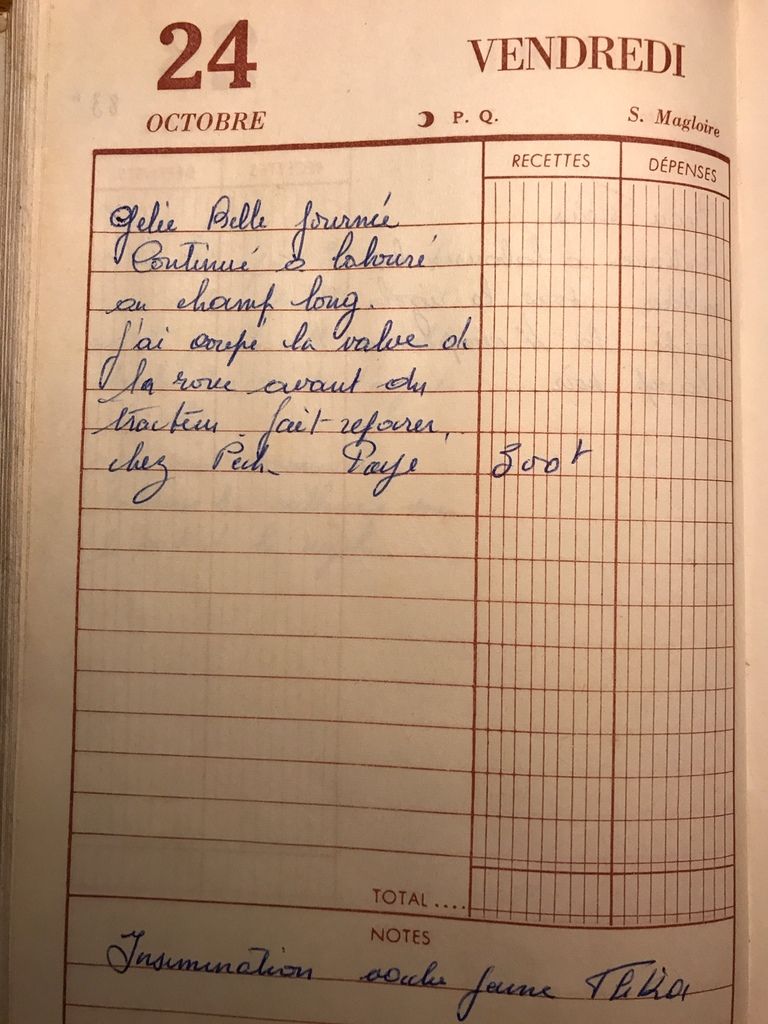 24 VENDREDI
OCTOBRE P. Q. S. Magloire
RECETTES DÉPENSES
Gelée Belle journée
Continué a labouré
au champ long.
J'ai coupé la valve de
la roue avant du
tracteur. fait réparer,
chez Paye 300f
TOTAL ....
NOTES
Insemination vache jaune